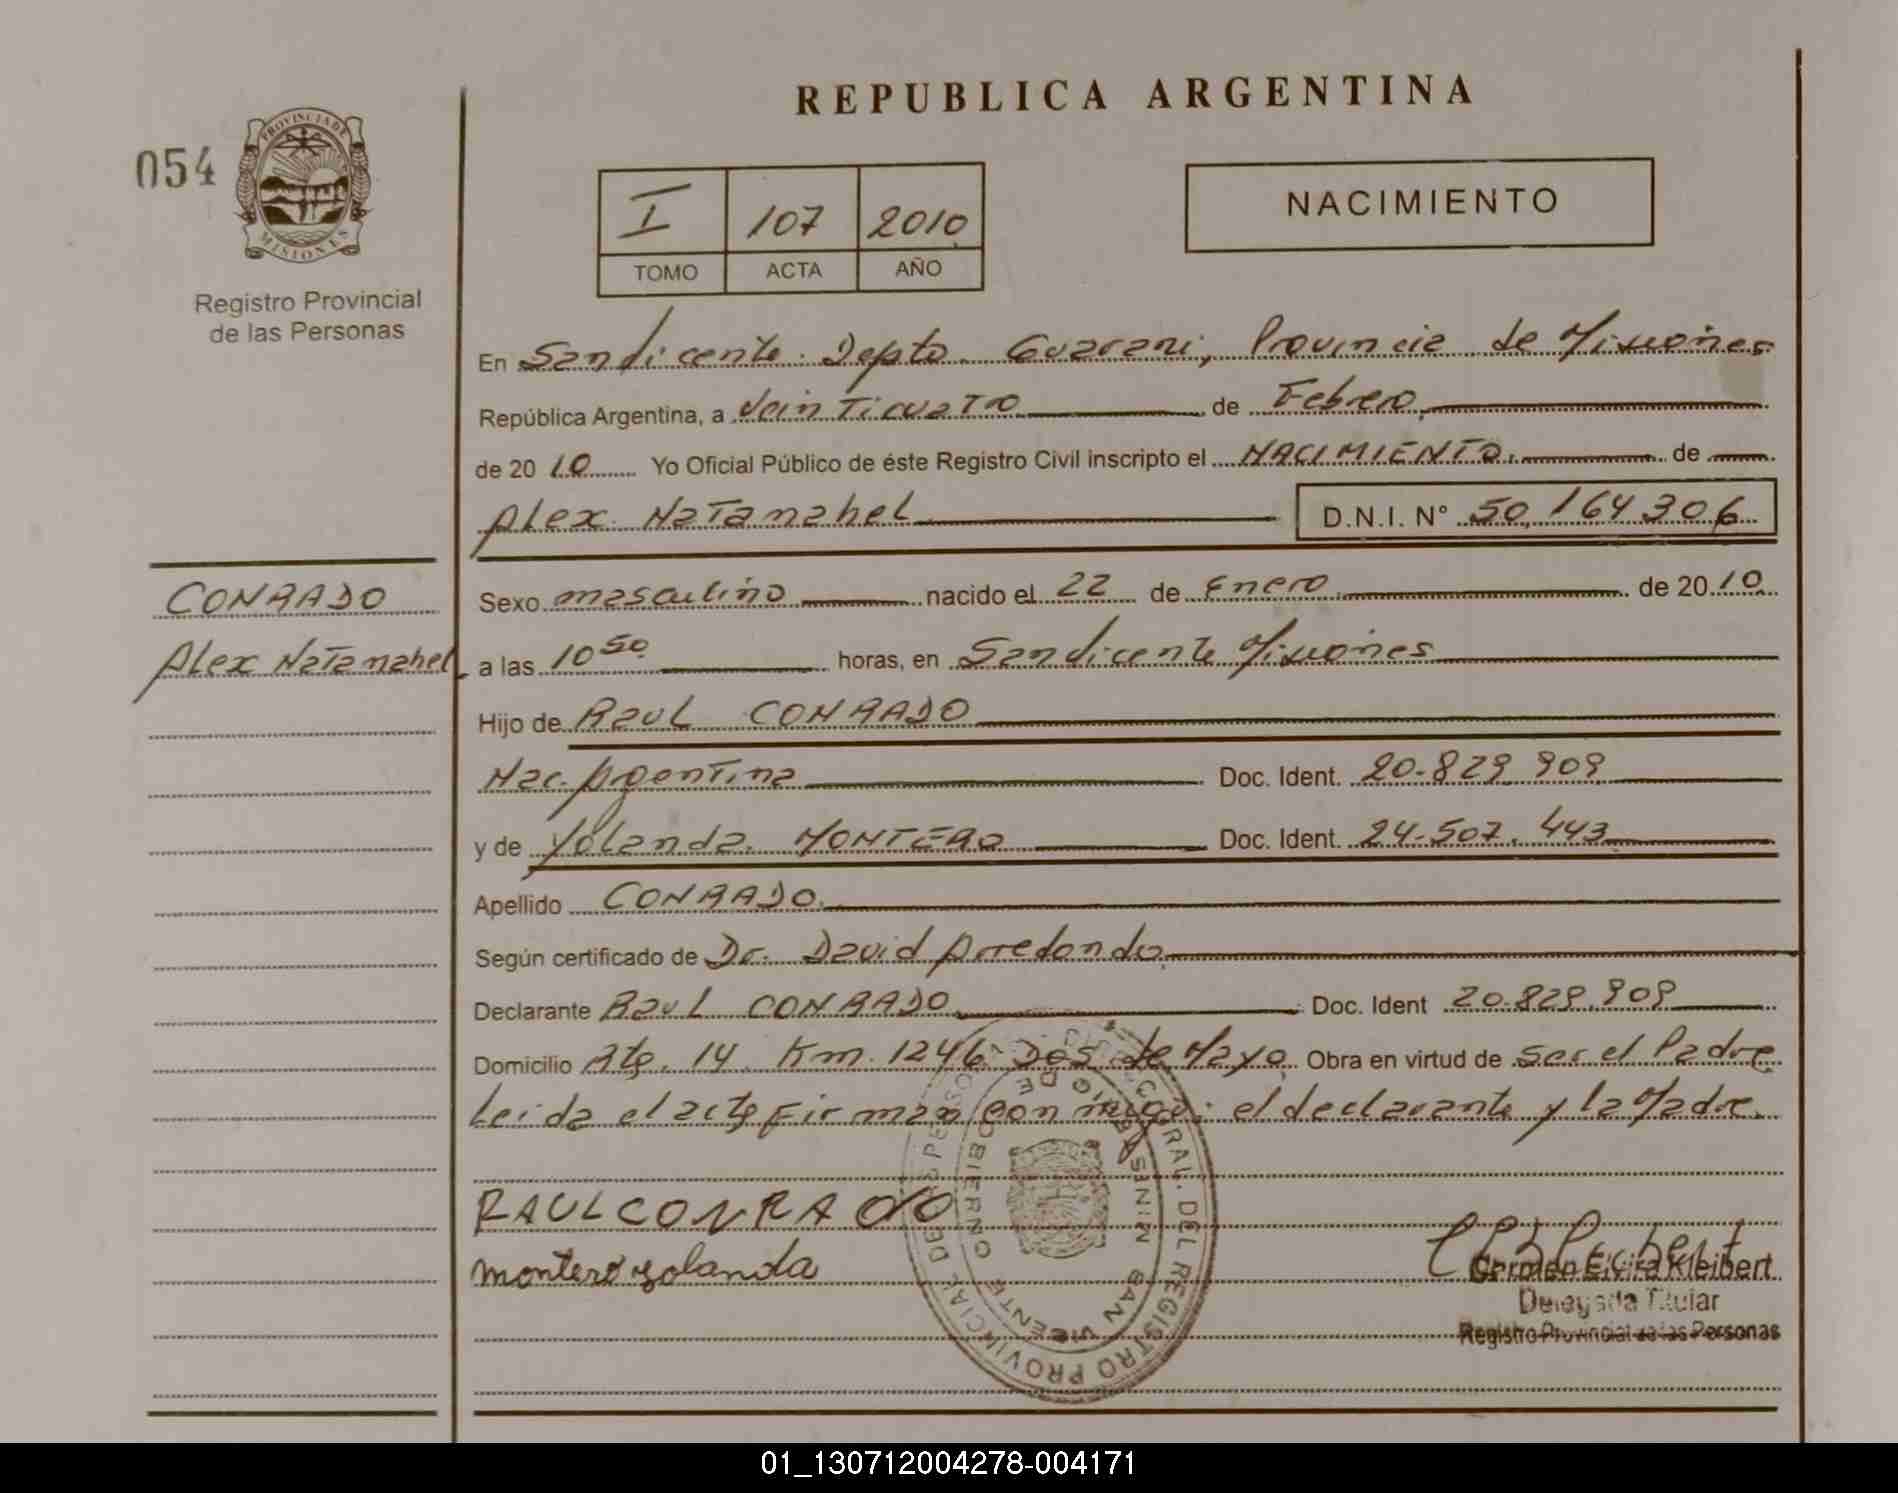 REPUBLICA ARGENTINA
054
PROVINCIA DE
MISIONES
Registro Provincial
de las Personas
I 107 2010
TOMO ACTA AÑO
NACIMIENTO
En San Vicente. Depto. Guarani, Provincia de Misiones
República Argentina, a Veinticuatro de Febrero
de 20 10 Yo Oficial Público de éste Registro Civil inscripto el NACIMIENTO. de
Alex Natanahel D.N.I. N° 50.164306
CONRADO
Alex Natanahel
Sexo masculino nacido el 22 de Enero de 20 10
a las 10 50 horas, en San Vicente Misiones
Hijo de Raul CONRADO
Nac. Argentina Doc. Ident. 20.829.909
y de Yolanda MONTERO Doc. Ident. 24.507.443
Apellido CONRADO
Según certificado de Dr. David Arredondo
Declarante Raul CONRADO Doc. Ident 20.829.909
Domicilio Rta. 14 Km. 1246 Dos de Mayo Obra en virtud de ser el Padre
Leida el acta Firman conmigo: el declarante y la Madre.
RAUL CONRADO
montero yolanda
Carmen Elvira Kleibert
Delegada Titular
Registro Provincial de las Personas
REGISTRO PROVINCIAL DE
SAN VICENTE
01_130712004278-004171